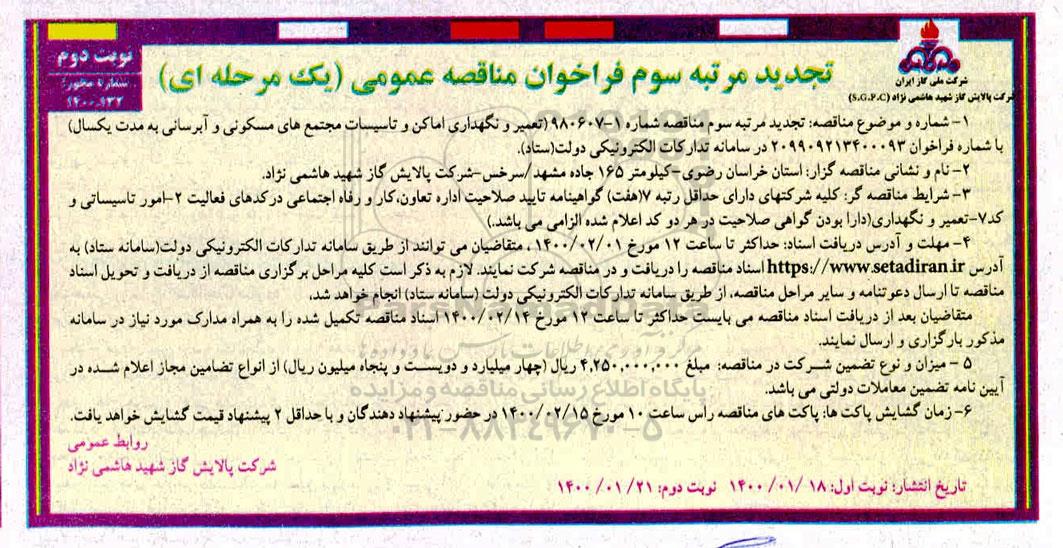 نوبت دوم
شماره مجوز:
۱۴۰۰.۹۳۲
شرکت ملی گاز ایران
شرکت پالایش گاز شهید هاشمی نژاد (S.G.P.C)
تجدید مرتبه سوم فراخوان مناقصه عمومی (یک مرحله ای)
۱- شماره و موضوع مناقصه: تجدید مرتبه سوم مناقصه شماره ۱-۹۸۰۶۰۷ (تعمیر و نگهداری اماکن و تاسیسات مجتمع های مسکونی و آبرسانی به مدت یکسال)
با شماره فراخوان ۲۰۹۹۰۹۲۱۳۴۰۰۰۹۳ در سامانه تدارکات الکترونیکی دولت(ستاد).
۲- نام و نشانی مناقصه گزار: استان خراسان رضوی-کیلومتر ۱۶۵ جاده مشهد/سرخس-شرکت پالایش گاز شهید هاشمی نژاد.
۳- شرایط مناقصه گر: کلیه شرکتهای دارای حداقل رتبه ۷(هفت) گواهینامه تایید صلاحیت اداره تعاون،کار و رفاه اجتماعی درکدهای فعالیت ۲-امور تاسیساتی و
کد۷-تعمیر و نگهداری(دارا بودن گواهی صلاحیت در هر دو کد اعلام شده الزامی می باشد.)
۴- مهلت و آدرس دریافت اسناد: حداکثر تا ساعت ۱۲ مورخ ۱۴۰۰/۰۲/۰۱ ، متقاضیان می توانند از طریق سامانه تدارکات الکترونیکی دولت(سامانه ستاد) به
آدرس https://www.setadiran.ir اسناد مناقصه را دریافت و در مناقصه شرکت نمایند. لازم به ذکر است کلیه مراحل برگزاری مناقصه از دریافت و تحویل اسناد
مناقصه تا ارسال دعوتنامه و سایر مراحل مناقصه، از طریق سامانه تدارکات الکترونیکی دولت (سامانه ستاد) انجام خواهد شد.
متقاضیان بعد از دریافت اسناد مناقصه می بایست حداکثر تا ساعت ۱۲ مورخ ۱۴۰۰/۰۲/۱۴ اسناد مناقصه تکمیل شده را به همراه مدارک مورد نیاز در سامانه
مذکور بارگزاری و ارسال نمایند.
۵ - میزان و نوع تضمین شرکت در مناقصه: مبلغ ۴,۲۵۰,۰۰۰,۰۰۰ ریال (چهار میلیارد و دویست و پنجاه میلیون ریال) از انواع تضامین مجاز اعلام شده در
آیین نامه تضمین معاملات دولتی می باشد.
۶- زمان گشایش پاکت ها: پاکت های مناقصه راس ساعت ۱۰ مورخ ۱۴۰۰/۰۲/۱۵ در حضور پیشنهاد دهندگان و با حداقل ۲ پیشنهاد قیمت گشایش خواهد یافت.
روابط عمومی
شرکت پالایش گاز شهید هاشمی نژاد
تاریخ انتشار: نوبت اول: ۱۸ /۰۱/ ۱۴۰۰ نوبت دوم: ۲۱ /۰۱/ ۱۴۰۰
پایگاه اطلاع رسانی مناقصه و مزایده
۰۲۱-۸۸۳۴۹۶۷۰-۵